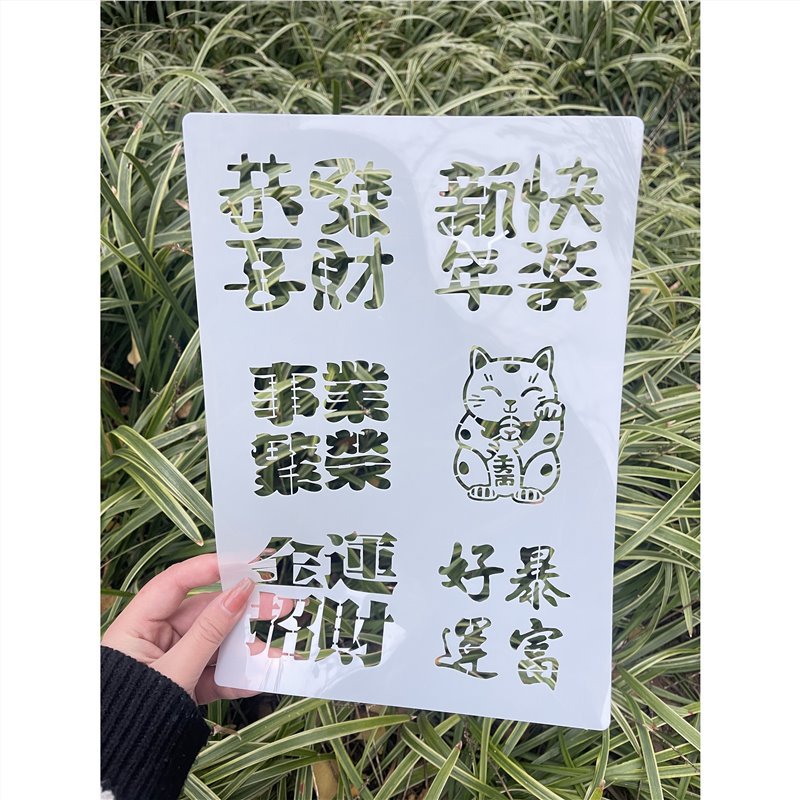 恭喜
發財
新年
快楽
事業
繁榮
金運
招財
好運
暴富